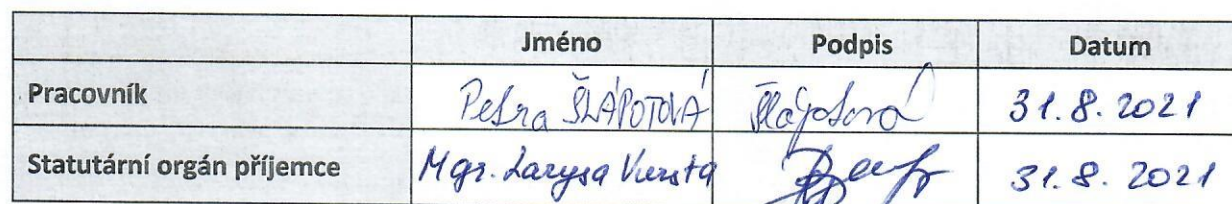 Jméno Podpis Datum
Pracovník Petra ŠLÁPOTOVÁ Šlápotová 31.8.2021
Statutární orgán příjemce Mgr. Larysa 31.8.2021